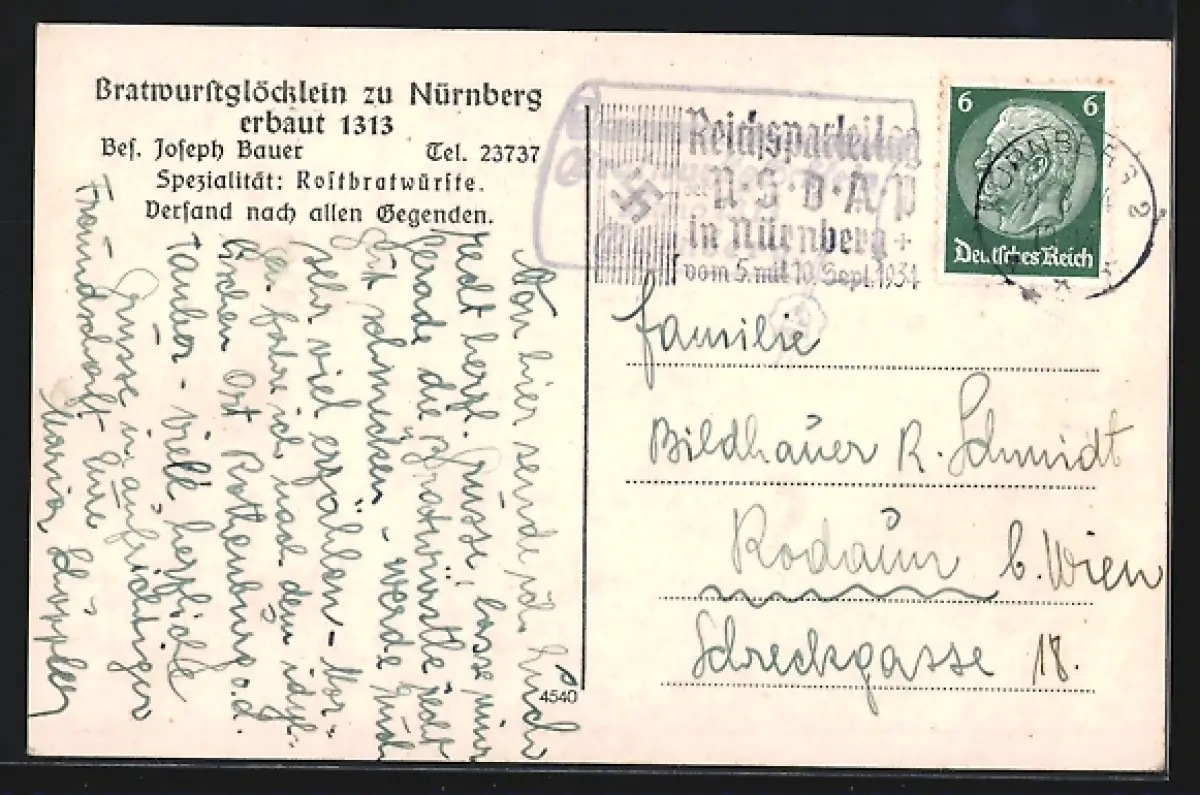 Bratwurstglöcklein zu Nürnberg
erbaut 1313
Bes. Joseph Bauer Tel. 23737
Spezialität: Rostbratwürste.
Versand nach allen Gegenden.
Von hier sende ich Euch
recht herzl. Grüsse, lasse mir
gerade die Bratwürstle recht
gut schmecken – werde Euch
sehr viel erzählen – Mor-
gen fahre ich nach dem idyl-
lischen Ort Rothenburg o. d.
Tauber – viele herzliche
Grüsse in aufrichtiger
Freundschaft Eure
Maria
4540
Reichsparteitag
der N·S·D·A·P
in Nürnberg
vom 5. mit 10. Sept. 1934
6 6
Deutsches Reich
NÜRNBERG 2
Familie
Bildhauer R. Schmidt
Rodaun b. Wien
Schreckgasse 18.